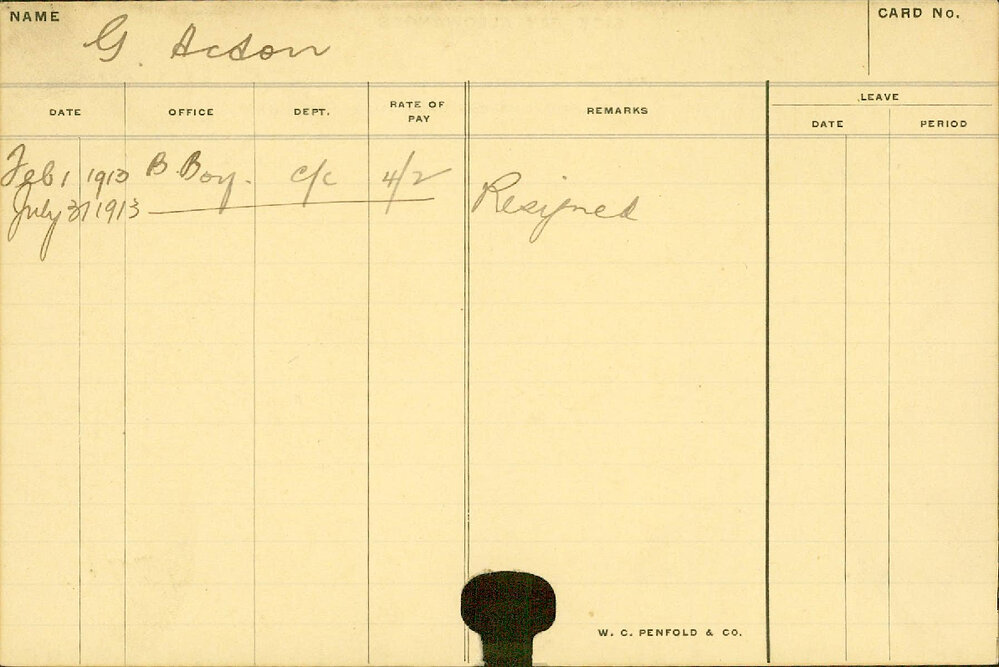 NAME G. Acson CARD No.
DATE OFFICE DEPT. RATE OF PAY REMARKS LEAVE
DATE PERIOD
Feb 1 1913 B. Boy. c/c 4/2
July 31 1913 Resigned
W. C. PENFOLD & CO.